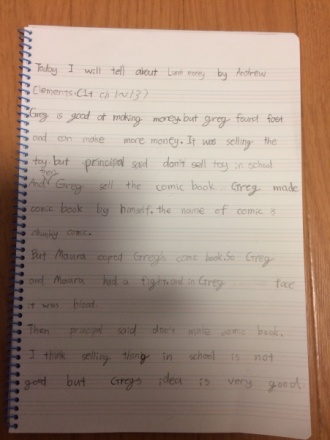 Today I will tell about Lunch money by Andrew
Clements. CL1 ch1
Greg is good at making money. but greg faust foot
and can make more money. It was selling the
toy. but principal said don't sell toy in school.
And Greg sell the comic book. Greg made
comic book by himself. the name of comic is
chunky comic.
But Maura copied Greg's comic book. So Greg
and Maura had a fight. and in Greg face
it was blood.
Then principal said don't comic book.
I think selling thing in school is not
good but Gregs idea is very good